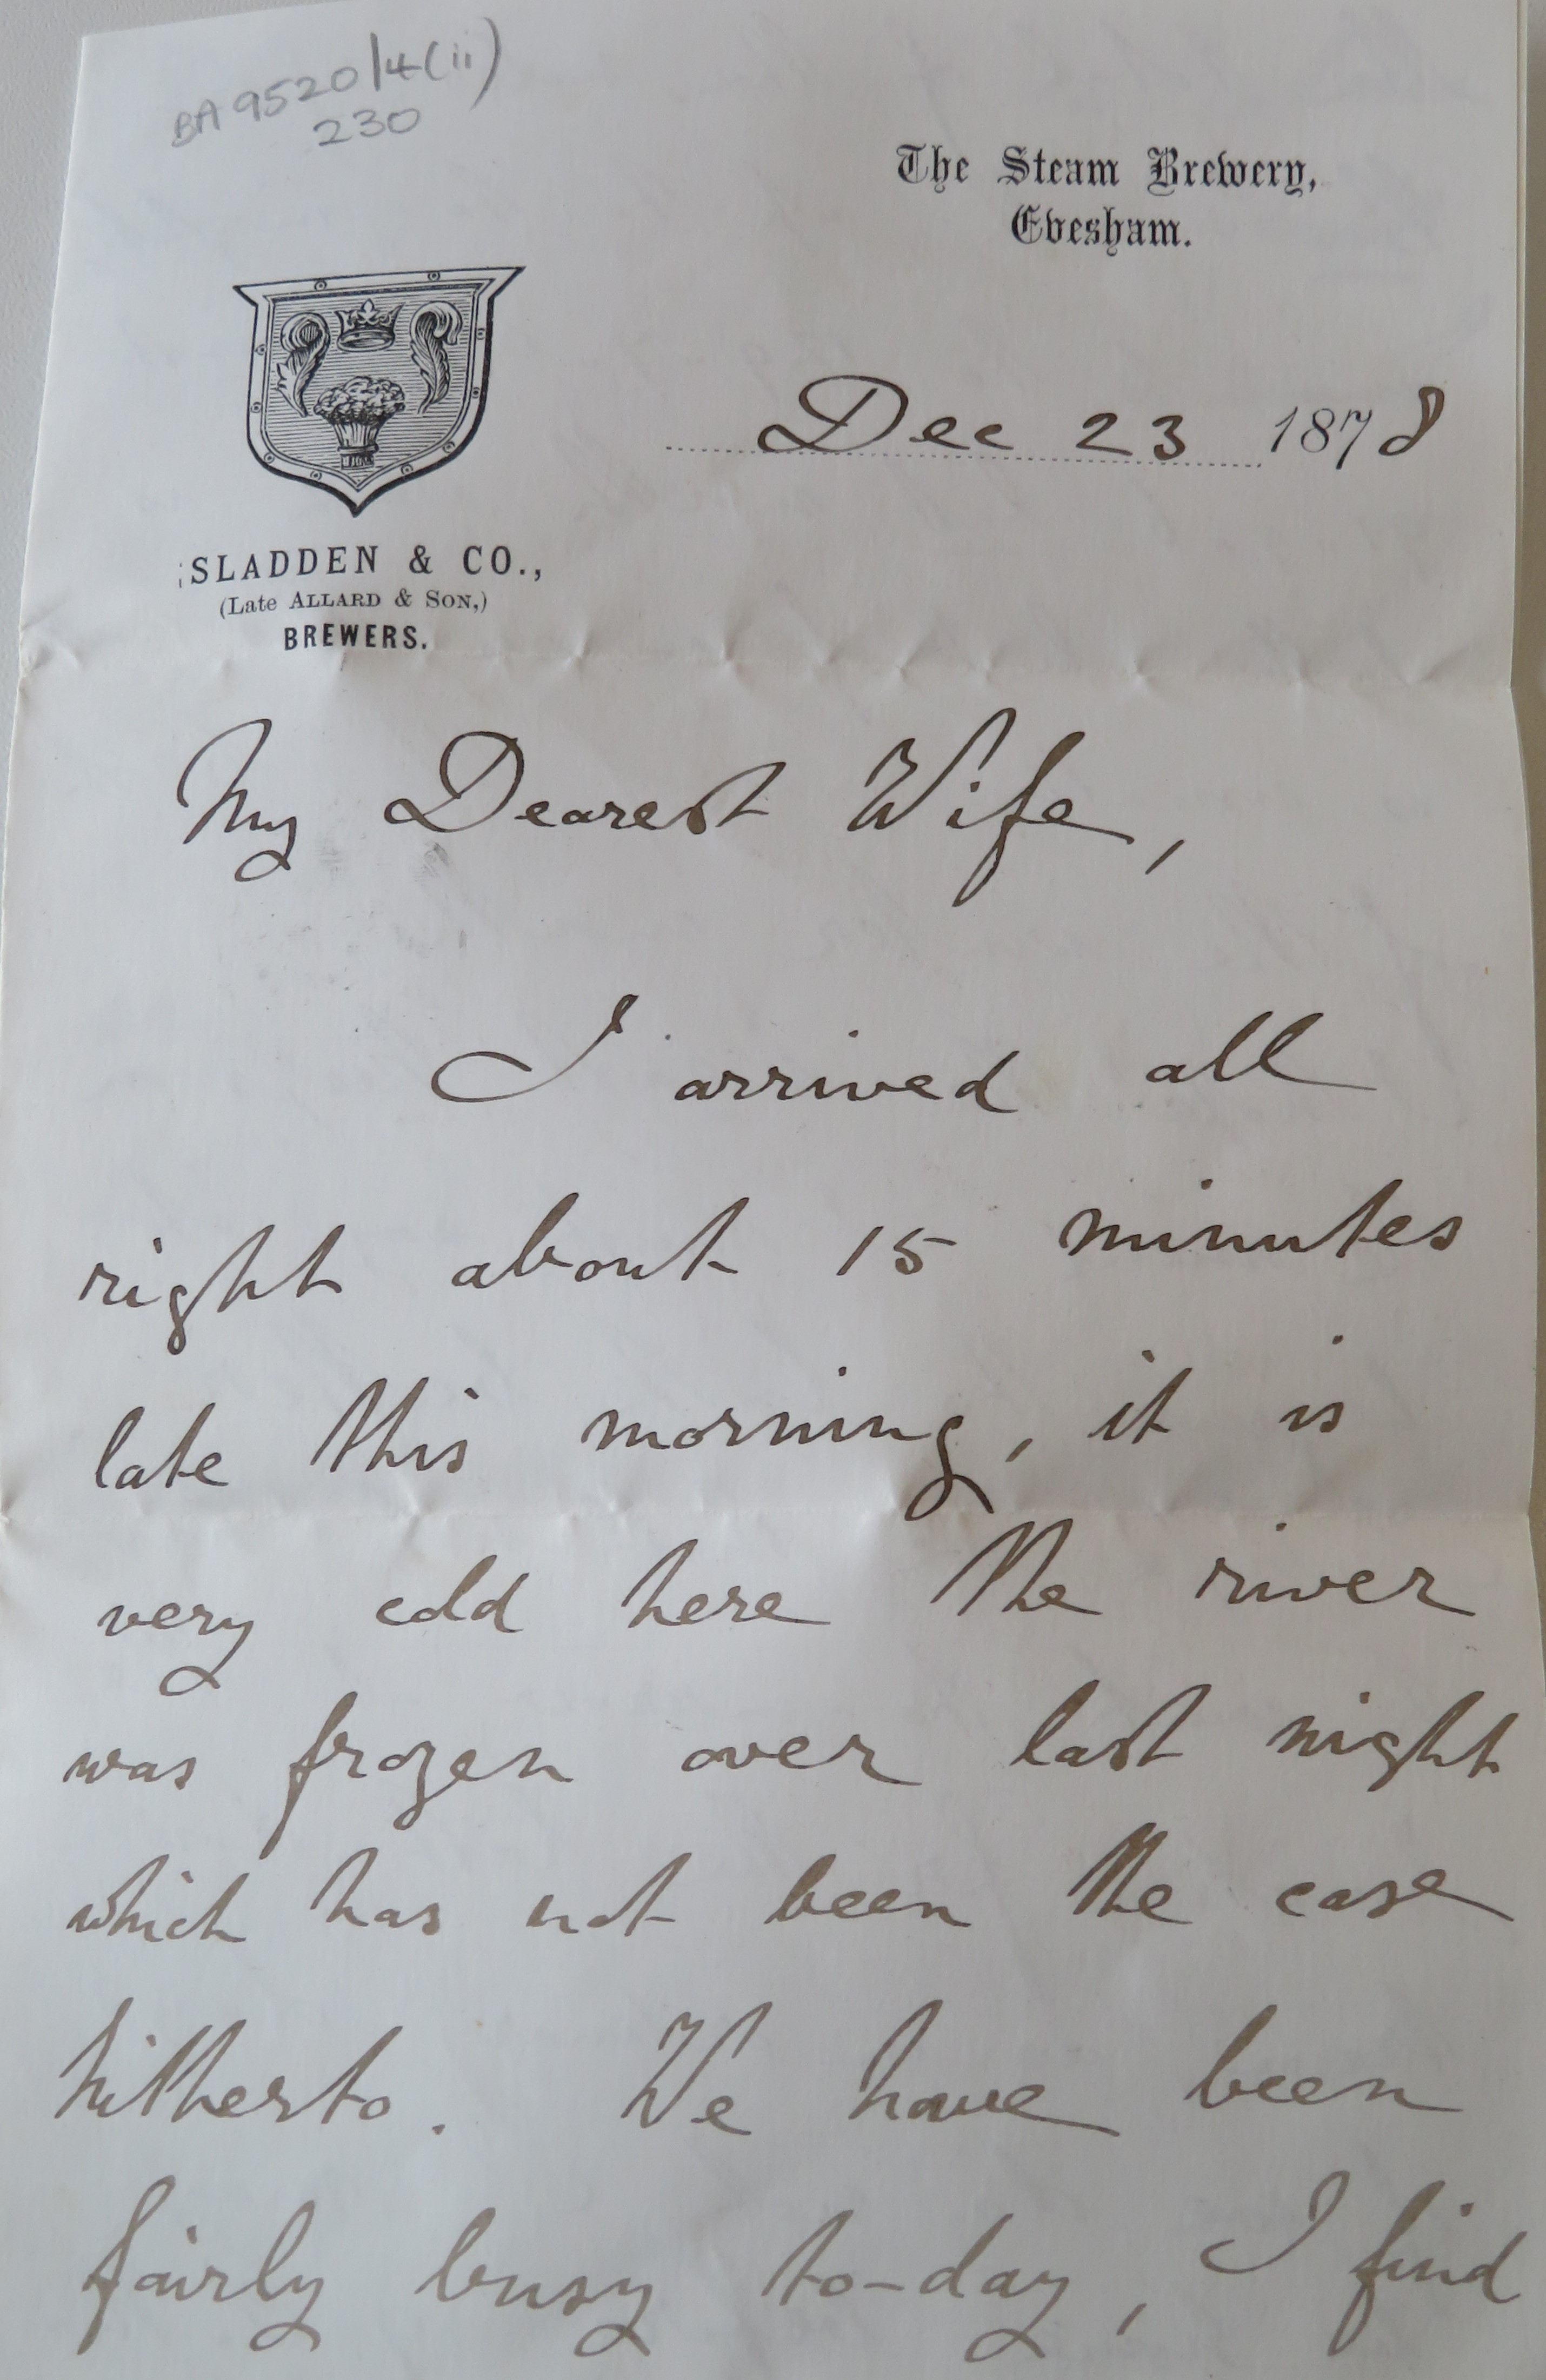 BA 9520/4(ii)
230
The Steam Brewery,
Evesham.
Dec 23 1878
SLADDEN & CO.,
(Late ALLARD & SON,)
BREWERS.
My Dearest Wife,
I arrived all
right about 15 minutes
late this morning, it is
very cold here the river
was frozen over last night
which has not been the case
hitherto. We have been
fairly busy to-day, I find